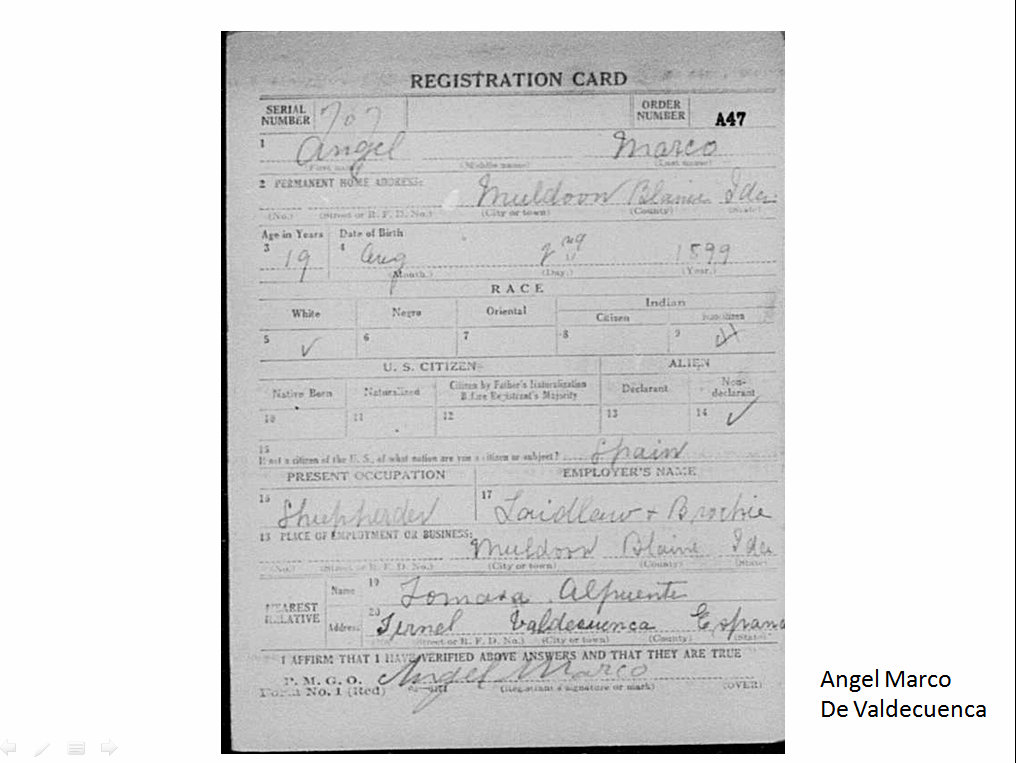 REGISTRATION CARD
SERIAL NUMBER 707 ORDER NUMBER A47
1 Angel Marco
(First name) (Middle name) (Last name)
2 PERMANENT HOME ADDRESS: Muldoon Blaine Ida
(No.) (Street or R. F. D. No.) (City or town) (County) (State)
Age in Years Date of Birth
3 19 4 Aug 2nd 1899
(Month.) (Day.) (Year.)
RACE
White Negro Oriental Indian
Citizen Noncitizen
5 ✓ 6 7 8 9
U. S. CITIZEN ALIEN
Native Born Naturalized Citizen by Father's Naturalization Before Registrant's Majority Declarant Non-declarant
10 11 12 13 14 ✓
15 If not a citizen of the U. S., of what nation are you a citizen or subject? Spain
PRESENT OCCUPATION EMPLOYER'S NAME
16 Sheepherder 17 Laidlaw + Brockie
18 PLACE OF EMPLOYMENT OR BUSINESS: Muldoon Blaine Ida
(No.) (Street or R. F. D. No.) (City or town) (County) (State)
NEAREST RELATIVE Name 19 Tomasa Alpuente
Address 20 Valdecuenca Espana
(Street or R. F. D. No.) (City or town) (County) (State)
I AFFIRM THAT I HAVE VERIFIED ABOVE ANSWERS AND THAT THEY ARE TRUE
P. M. G. O.
Form No. 1 (Red) Angel Marco
(Registrant's signature or mark) (OVER)
Angel Marco
De Valdecuenca